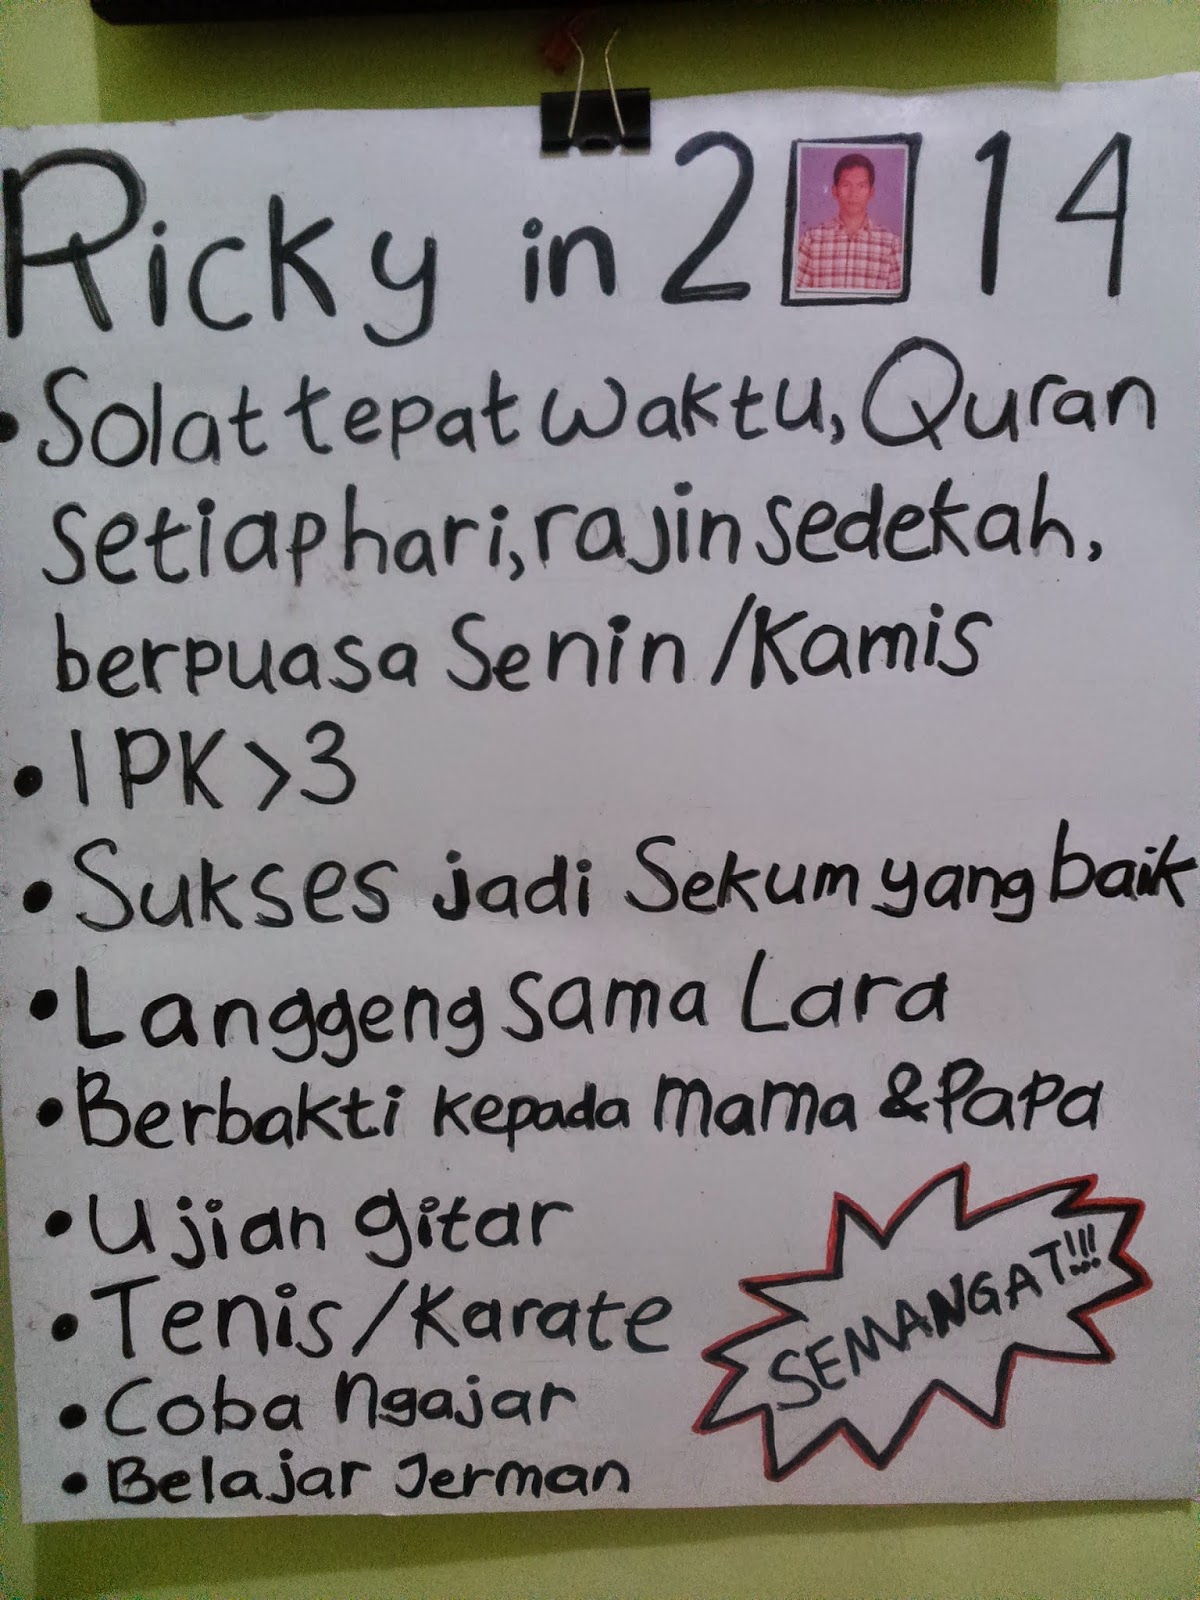 Ricky in 2 14
• Solat tepat waktu, Quran
setiap hari, rajin sedekah,
berpuasa Senin/Kamis
• IPK > 3
• Sukses jadi Sekum yang baik
• Langgeng sama Lara
• Berbakti kepada mama & Papa
• Ujian gitar
• Tenis/Karate
• Coba ngajar
• Belajar Jerman
SEMANGAT!!!